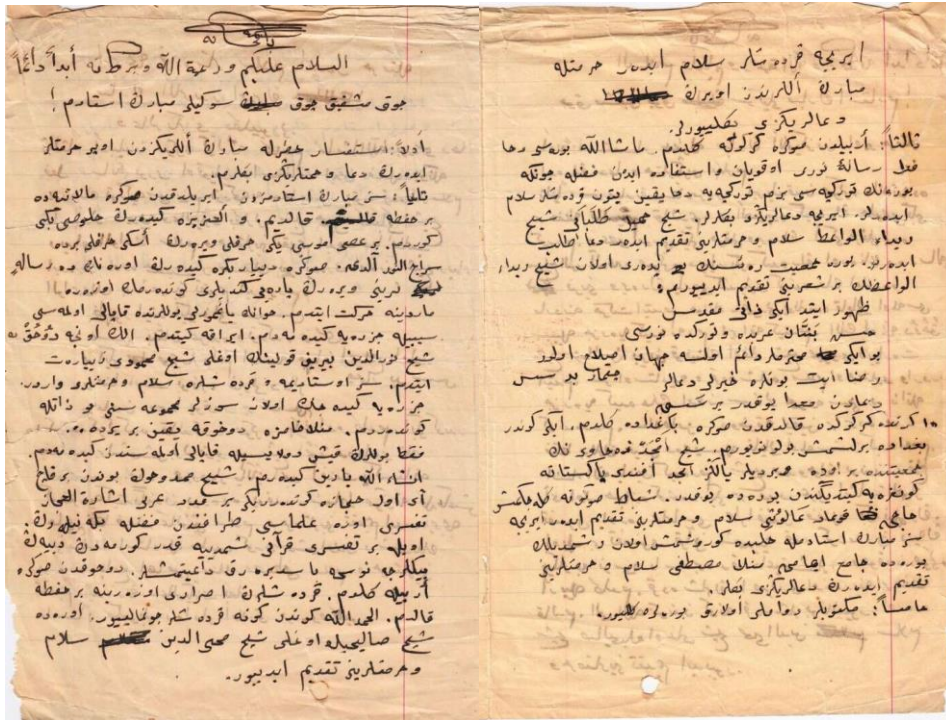 باسمه
السلام عليكم ورحمة الله وبركاته أبداً دائماً
چوق مشفق چوق سوكيلى مبارك استادم !
أولاً: استفسار خاطرله مبارك أللريكزدن اوپر حرمتلر
ايده رك دعا وهمتلريكزى بكلرم.
ثانياً: سز مبارك استادمزدن ايريلدقدن صوكره مالاتيه ده
بر هفطه قالدم. و العزيزه كيده رك خلوصى بكى
كوردم. بر عصاى موسى يكى حرفلى ويره رك أسكى حرفلى برده
سراج النور آلدم. صوكره دياربكره كيده رك اوره نك ده رساله
لرينى ويره رك
ماردينه حركت ايتدم. هوانك ياغمورلى يوللرنده قاپالى اولمه سى
سببيله جزره يه كيده مه دم. ايراقه كيتدم. الك اونجه دهوك ده
شيخ نورالدين بيريفقانينك اوغلى شيخ محمودى زيارت
ايتدم. سز اوستاديمه و قرده شلره سلام وحرمتلرى واردر.
جزره يه كيده جك اولان سوزلر مجموعه سنى بو ذاتله
كوندەردم. دهوقه يقين بر يرده
فقط يوللرك قيش دولاييسيله قاپالى اولمه سندن كيده مه دم.
ان شاء الله يازين كيده رم. شيخ ممدوحك بوندن بر قاچ
آى اول حجازه كوندەرديكى بر عدد عربى اشارة العجاز
تفسيرى اوزه علماسى طرافندن
اويله بر تفسيرى قرآنى شمديه قدر كورمه دك دييه رك
بيكلرجه نوسخه باسديره رق داغيتمشلر. دوهوقدن صوكره
أربيله كلدم. قرده شلرك اصرارى اوزه رينه بر هفطه
قالدم. الحمد لله كوندن كونه قرده شلر چوغالييور. اوره ده
شيخ صاليحله اوغلى شيخ محى الدين سلام
وحرمتلرينى تقديم ايدييور.
ايريجه قرده شلر سلام ايده ر حرمتله
مبارك أللريندن اوپرك
ودعالريكزى بكلييورلر.
ثالثاً: أربيلدن صوكره كركوكه كلدم. ماشاالله بوره سى دها
فضله رسالهٔ نورى اوقويان واستفاده ايدن فضله چونكه
بوره نك توركچه سى بزم توركچه يه دها يقين بتون قرده شلر سلام
ايده رلر. ايريجه دعالريكزى بكلرلر. شيخ شيخ
رىداء الواعظ سلام وحرمتلرينى تقديم ايده ر دعا طلب
ايده رلر. بوره جمعيت رئيسنك پده رى اولان شيخ رىداء
الواعظك بر شعرينى تقديم ايدييورم:
ظهور ايتدى ايكى ذاتى مقدس
حسن بنّان عربده وتوركده نورسى
بو ايكى محترملر دائم اولسه جهان اصلاح اولور
رضا ايت بونلره خيرلى دعالر
دعادن معدا يوقدر بر كسه
١٥ كونده كركوكده قالدقدن صوكره باغداده كلدم. ايكى كوندر
بغداده يرلشمش بولونويورم. شيخ أمجد زهاوى نك
جمعيتنده بر اوده ويرديلر يالكز أمجد أفندى پاكستانه
كونفره يه كيتديكندن بوره ده يوقدر. شباط صوكونه كله جكمش
حاجى سلام وحرمتلرينى تقديم ايده ر ايريجه
سز مبارك استادمله حلبده كوروشمش اولان وشمديلك
بوره ده جامع امامى منلا مصطفى سلام وحرمتلرينى
تقديم ايده رك دعالريكزى بكلر.
خامساً: مكتوبلر دواملى اولارق بوره لره كلييور.